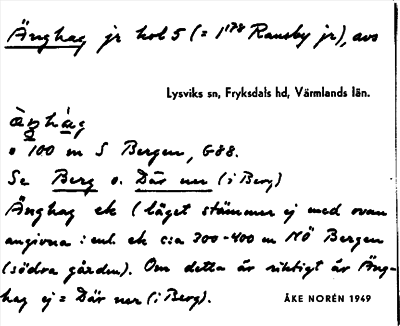 Änghag jr hol 5 (= 1¹⁷⁸ Ransby jr), avs
Lysviks sn, Fryksdals hd, Värmlands län.
àŋhág
o 100 m S Bergen, G88.
Se Berg o. Där ner (i Berg)
Änghag ek (läget stämmer ej med ovan
angivna: enl. ek c:a 300-400 m NÖ Bergen
(södra gården). Om detta är riktigt är Äng-
hag ej = Där ner (i Berg).
ÅKE NORÉN 1949